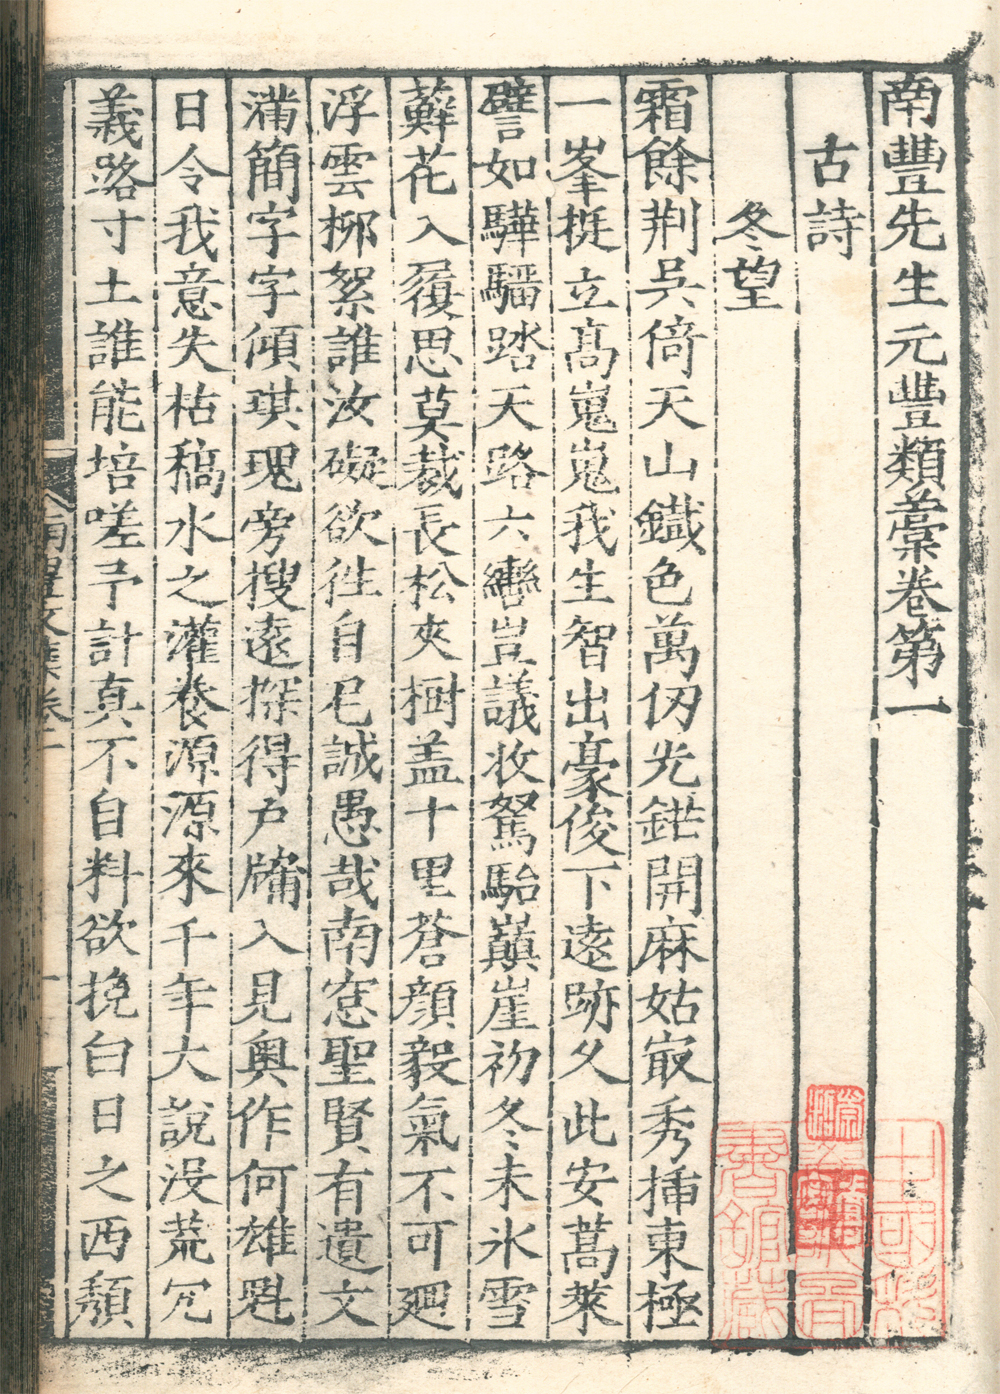 南豐先生元豐類藁卷第一
古詩
冬望
霜餘荆吳倚天山鐵色萬仞光鋩開麻姑㝡秀揷東極
一峯挺立高嵬嵬我生智出豪俊下遠跡久此安蒿萊
譬如驊騮踏天路六轡豈議收駑駘巔崖初冬未氷雪
蘚花入履思莫裁長松夾樹盖十里蒼顔毅氣不可廻
浮雲柳絮誰汝礙欲徃自尼誠愚哉南窓聖賢有遺文
滿簡字字傾琪瑰旁搜遠探得户牖入見奥作何雄魁
日令我意失枯槁水之灌養源源來千年大說没荒冗
義路寸土誰能培嗟予計真不自料欲挽白日之西頽